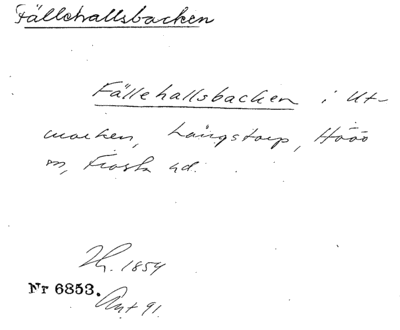 Fällehallsbacken
Fällehallsbacken i Ut-
marken, Långstorp, Höö
sn, Frosta hd.
Th. 1854
Nr 6853.
Ant 91